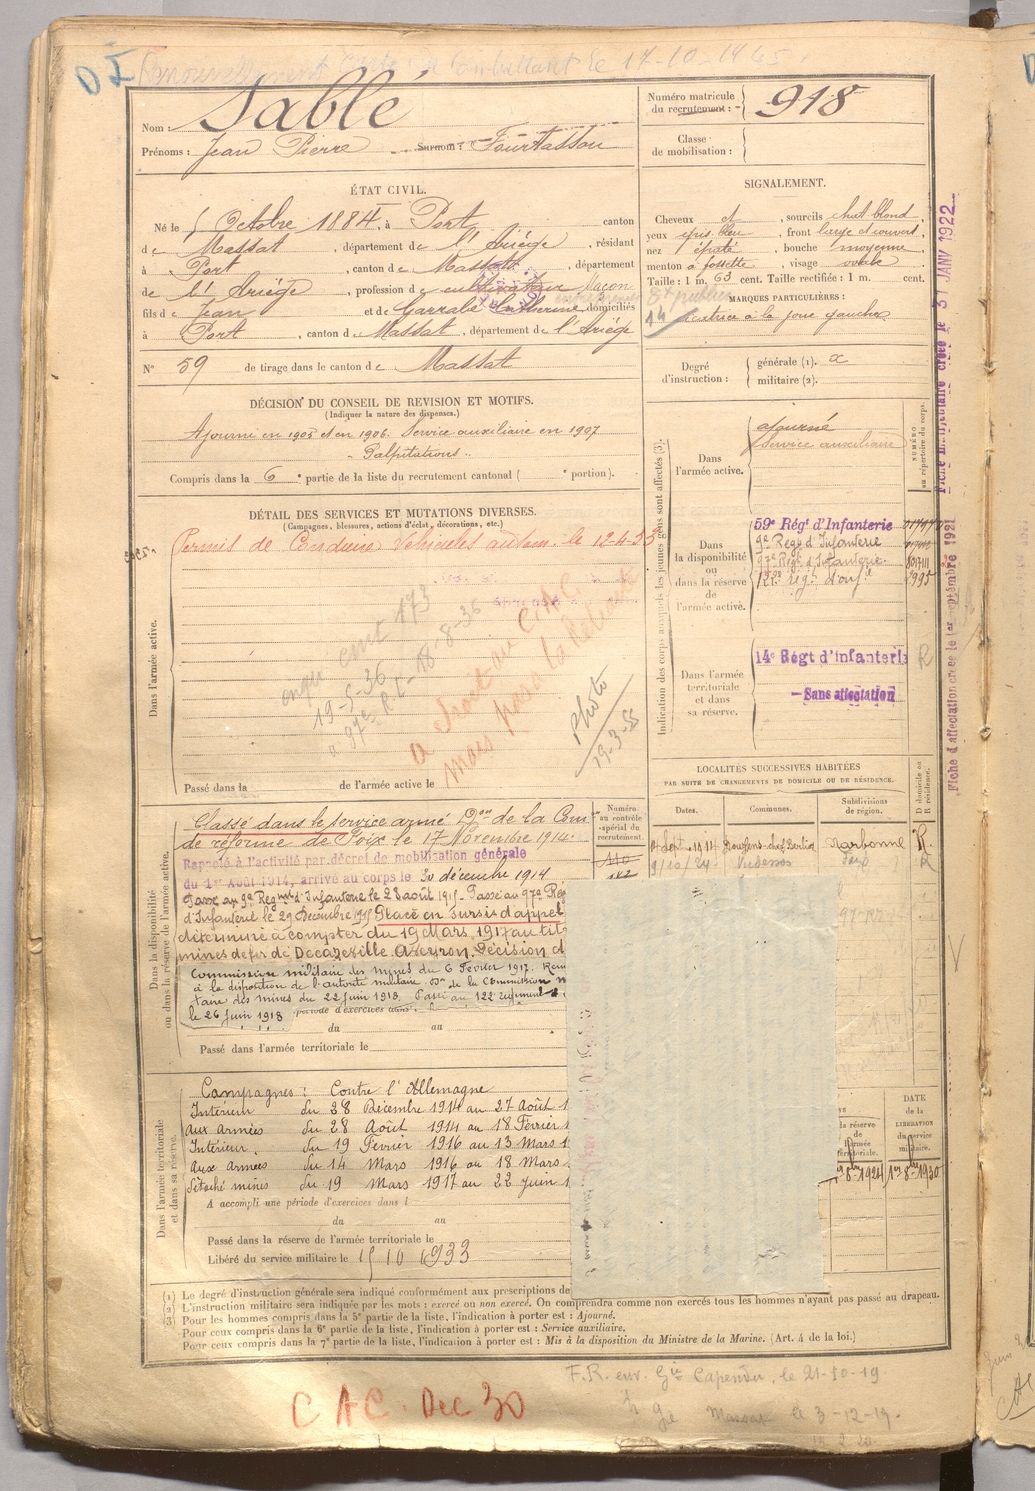 DI Renouvellement Carte de Combattant le 17-10-1945.
Nom : Sablé
Prénoms : Jean Pierre Surnom : Fourtassou
Numéro matricule
du recrutement : 918
Classe
de mobilisation :
ÉTAT CIVIL.
Né le 5 Octobre 1884, à Port, canton
de Massat, département de l'Ariège, résidant
à Port, canton de Massat, département
de l'Ariège, profession de cultivateur Maçon
fils de Jean et de Garrabé Catherine, domiciliés
à Port, canton de Massat, département de l'Ariège
N° 59 de tirage dans le canton de Massat
SIGNALEMENT.
Cheveux et, sourcils chat blond,
yeux gris bleu, front large et couvert,
nez épaté, bouche moyenne,
menton à fossette, visage ovale
Taille : 1 m. 63 cent. Taille rectifiée : 1 m. cent.
MARQUES PARTICULIÈRES :
cicatrice à la joue gauche
Degré
d'instruction :
générale (1).
militaire (2).
DÉCISION DU CONSEIL DE REVISION ET MOTIFS.
(Indiquer la nature des dispenses.)
Ajourné en 1905 et en 1906. Service auxiliaire en 1907
Palpitations.
Compris dans la 6e partie de la liste du recrutement cantonal ( e portion).
DÉTAIL DES SERVICES ET MUTATIONS DIVERSES.
(Campagnes, blessures, actions d'éclat, décorations, etc.)
Permis de Conduire Véhicules autom. le 12-4-33
19-5-36
a droit au C.A.C.
mais pas à la Retraite
Photo
19-3-55
Dans l'armée active.
Passé dans la de l'armée active le
Indication des corps auxquels les jeunes gens sont affectés (3).
NUMÉRO
au répertoire du corps.
Dans
l'armée active.
ajourné
Service auxiliaire
Dans
la disponibilité
ou
dans la réserve
de
l'armée active.
59e Régt d'Infanterie
9e Régt d'Infanterie
97e Régt d'Infanterie
122e rég. d'inf.ie
Dans l'armée
territoriale
et dans
sa réserve.
14e Régt d'infanterie
Sans affectation
Fiche d'affectation créée le 1er septembre 1921
créée le 31 JANV 1922
LOCALITÉS SUCCESSIVES HABITÉES
PAR SUITE DE CHANGEMENTS DE DOMICILE OU DE RÉSIDENCE.
Dates.
Communes.
Subdivisions
de région.
D domicile ou
R résidence.
Narbonne R.
9/10/24 Vicdessos Foix R
Numéro
au contrôle
spécial du
recrutement.
Dans la disponibilité
ou dans la réserve de l'armée active.
Classé dans le service armé Don de la Com
de réforme de Foix le 17 Novembre 1914.
Rappelé à l'activité par décret de mobilisation générale
du 1er Août 1914, arrivé au corps le 30 décembre 1914
Passé au 9e Régmt d'Infanterie le 28 août 1915. Passé au 97e Rég
d'Infanterie le 29 Décembre 1915 Placé en sursis d'appel
déterminé à compter du 19 Mars 1917 au tit
mines de fer de Decazeville Aveyron. Décision d
Commission militaire des mines du 6 Février 1917. Rem
à la disposition de l'autorité militaire Don de la Commission m
taire des mines du 22 juin 1918. Passé au 122e régiment
le 26 juin 1918 période d'exercices dans
du au
Passé dans l'armée territoriale le
Dans l'armée territoriale
et dans sa réserve.
Campagnes : Contre l'Allemagne
Intérieur du 28 Décembre 1914 au 27 Août 1
aux armées du 28 Août 1914 au 18 Février 1
Intérieur du 19 Février 1916 au 13 Mars 1
Aux armées du 14 Mars 1916 au 18 Mars
Détaché mines du 19 Mars 1917 au 22 juin 1
A accompli une période d'exercices dans l
du au
Passé dans la réserve de l'armée territoriale le
Libéré du service militaire le 15 10 1933
la réserve
de
l'armée
territoriale.
DATE
de la
LIBÉRATION
du service
militaire.
(1) Le degré d'instruction générale sera indiqué conformément aux prescriptions de
(2) L'instruction militaire sera indiquée par les mots : exercé ou non exercé. On comprendra comme non exercés tous les hommes n'ayant pas passé au drapeau.
(3) Pour les hommes compris dans la 5e partie de la liste, l'indication à porter est : Ajourné.
Pour ceux compris dans la 6e partie de la liste, l'indication à porter est : Service auxiliaire.
Pour ceux compris dans la 7e partie de la liste, l'indication à porter est : Mis à la disposition du Ministre de la Marine. (Art. 4 de la loi.)
F.R. env. Gie Capendu, le 21-10-19
Massat le 3-12-19.
CAC. Dec 30